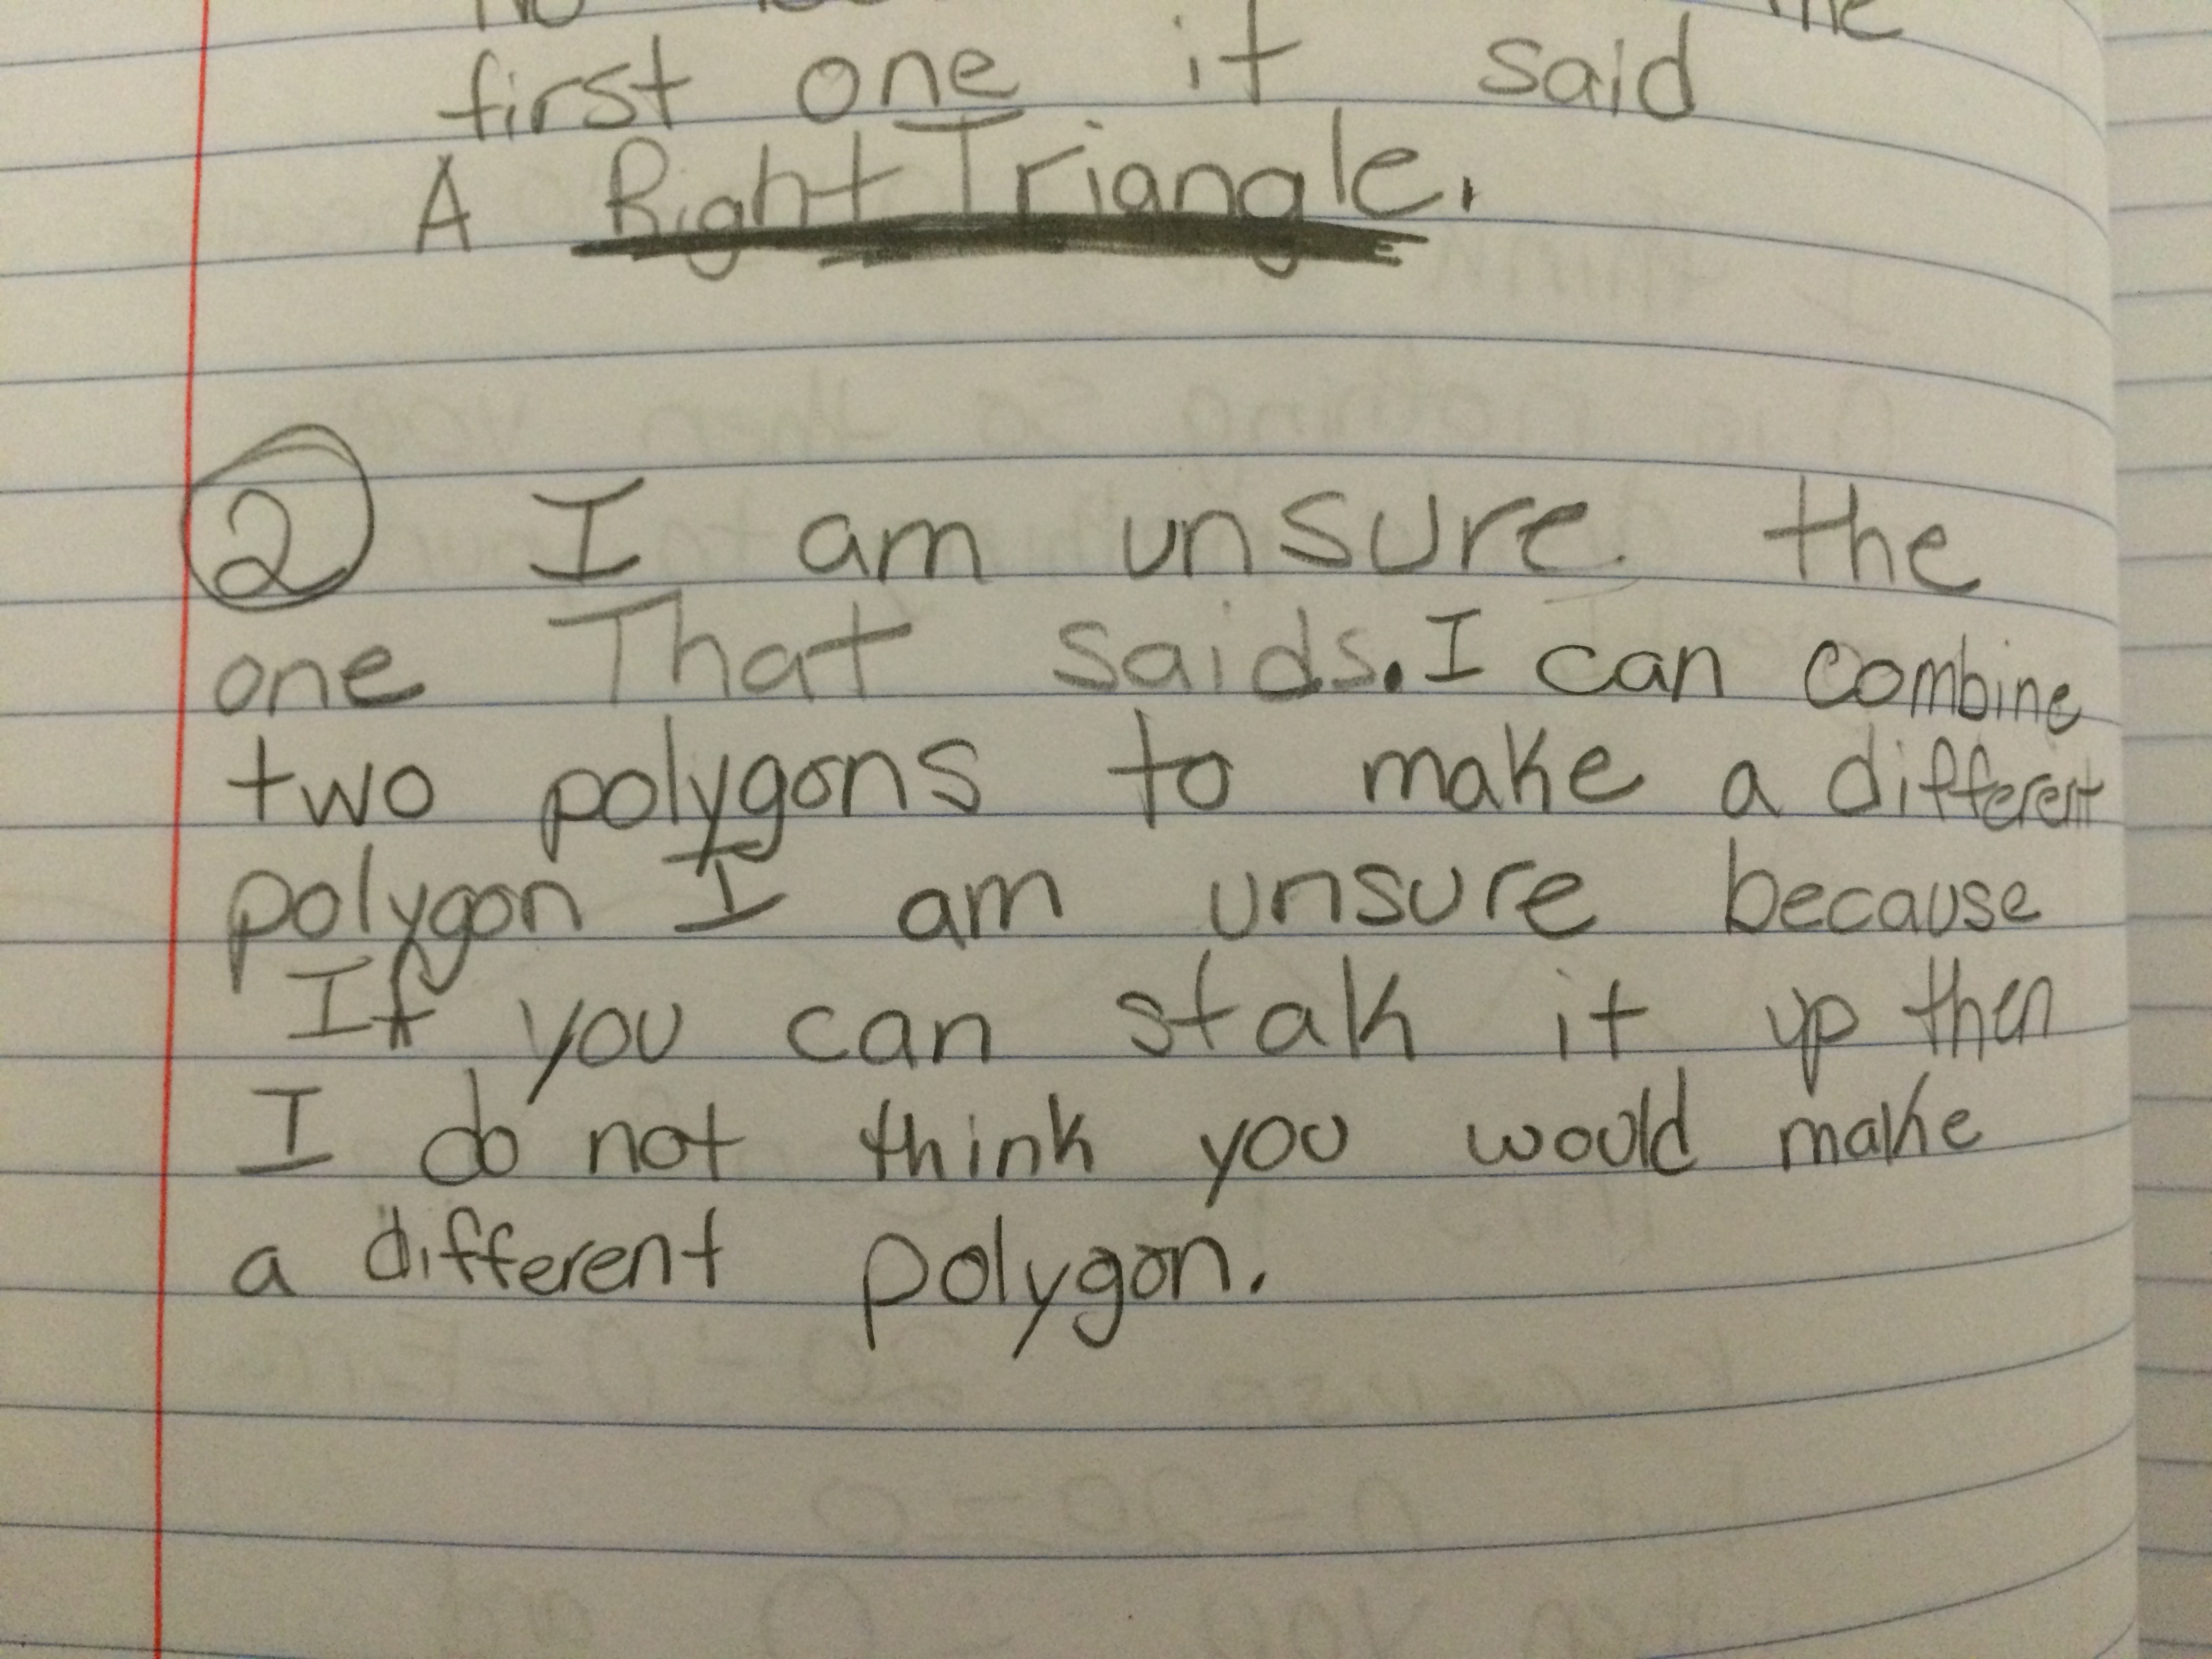 first one it said
A Right Triangle.
2 I am unsure the
one That saids. I can combine
two polygons to make a different
polygon I am unsure because
If you can stak it up then
I do not think you would make
a different polygon.